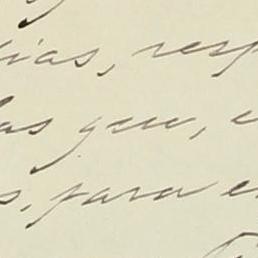 ias, resp
las que, e
s, para e